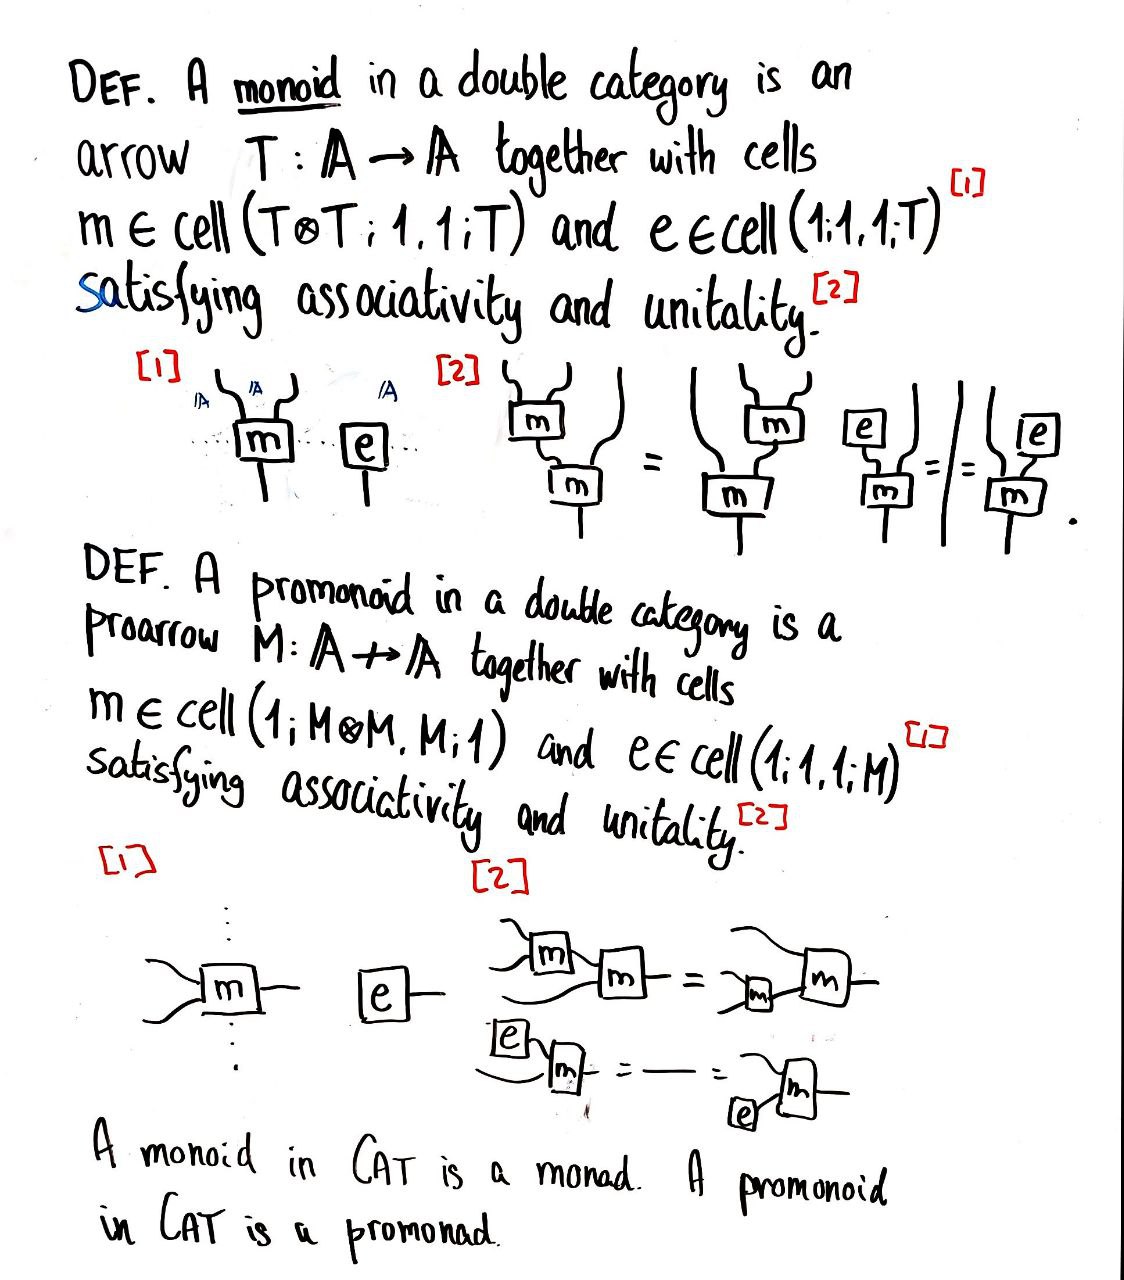 DEF. A monoid in a double category is an
arrow T : 𝔸 → 𝔸 together with cells
m ∈ cell (T⊗T ; 1, 1 ; T) and e ∈ cell (1;1,1;T) [1]
satisfying associativity and unitality. [2]
[1] [2]
𝔸 𝔸 𝔸
m e m m = m m e m = = e m .
DEF. A promonoid in a double category is a
proarrow M: 𝔸 ⇸ 𝔸 together with cells
m ∈ cell (1; M⊗M, M; 1) and e ∈ cell (1; 1, 1; M) [1]
satisfying associativity and unitality. [2]
[1] [2]
m e m m = m m
e m = — = e m
A monoid in CAT is a monad. A promonoid
in CAT is a promonad.